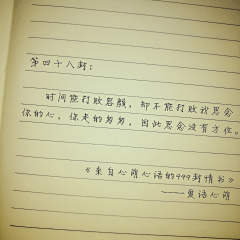 第四十八封:
时间能打败容颜，却不能打败我思念
你的心，你走的匆匆，因此思念没有方位。
《来自心萌心语的999封情书》
——爱语心萌